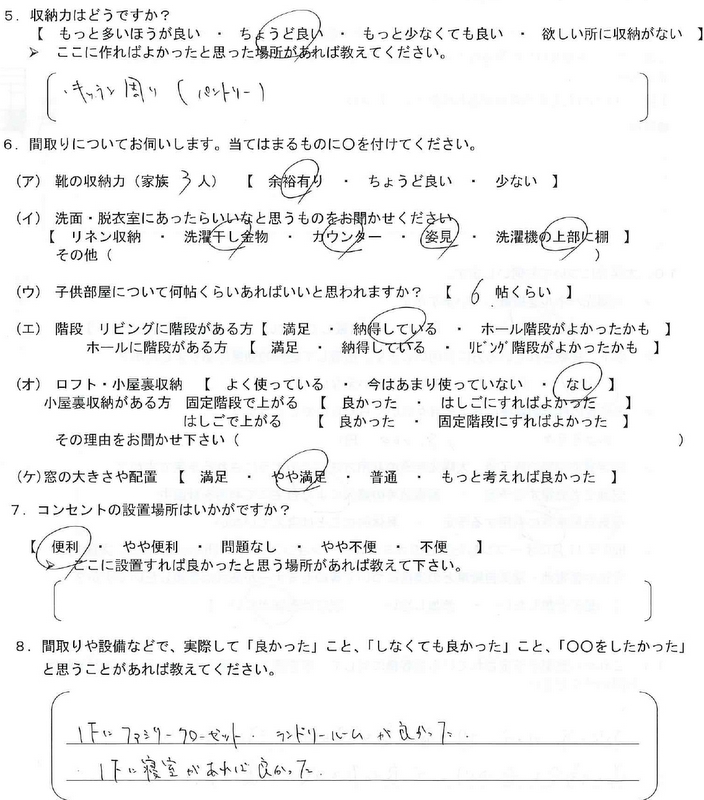 ５．収納力はどうですか？
【　もっと多いほうが良い　・　ちょうど良い　・　もっと少なくても良い　・　欲しい所に収納がない　】
➢　ここに作ればよかったと思った場所があれば教えてください。
・キッチン周り（パントリー）
６．間取りについてお伺いします。当てはまるものに〇を付けてください。
（ア）　靴の収納力（家族　３　人）　【　余裕有り　・　ちょうど良い　・　少ない　】
（イ）　洗面・脱衣室にあったらいいなと思うものをお聞かせください
【　リネン収納　・　洗濯干し金物　・　カウンター　・　姿見　・　洗濯機の上部に棚　】
その他（　　　　　　　　　　　　）
（ウ）　子供部屋について何帖くらいあればいいと思われますか？　【　６　帖くらい　】
（エ）　階段　リビングに階段がある方【　満足　・　納得している　・　ホール階段がよかったかも　】
ホールに階段がある方　【　満足　・　納得している　・　ﾘﾋﾞﾝｸﾞ階段がよかったかも　】
（オ）　ロフト・小屋裏収納　【　よく使っている　・　今はあまり使っていない　・　なし　】
小屋裏収納がある方　固定階段で上がる　【　良かった　・　はしごにすればよかった　】
はしごで上がる　【　良かった　・　固定階段にすればよかった　】
その理由をお聞かせ下さい（　　　　　　　　　　　　）
（ケ）窓の大きさや配置　【　満足　・　やや満足　・　普通　・　もっと考えれば良かった　】
７．コンセントの設置場所はいかがですか？
【　便利　・　やや便利　・　問題なし　・　やや不便　・　不便　】
➢　ここに設置すれば良かったと思う場所があれば教えて下さい。
８．間取りや設備などで、実際して「良かった」こと、「しなくても良かった」こと、「〇〇をしたかった」
と思うことがあれば教えてください。
１Fにファミリークローゼット・ランドリールームが良かった．
・１Fに寝室があれば良かった．